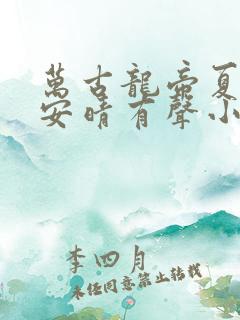 萬古龍帝夏
安晴有聲小
李四月
未經同意禁止轉載